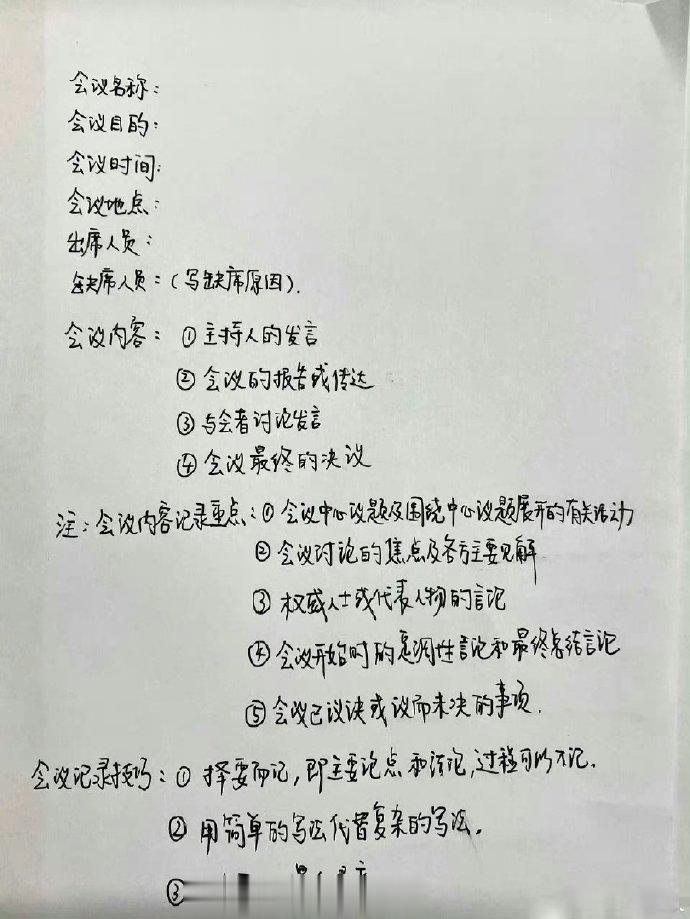 会议名称：
会议目的：
会议时间：
会议地点：
出席人员：
缺席人员：（写缺席原因）.
会议内容：①主持人的发言
②会议的报告或传达
③与会者讨论发言
④会议最终的决议
注：会议内容记录重点：①会议中心议题及围绕中心议题展开的有关活动
②会议讨论的焦点及各方主要见解
③权威人士或代表人物的言论
④会议开始时的定调性言论和最终总结言论
⑤会议已议决或议而未决的事项.
会议记录技巧：①择要而记，即主要论点和结论，过程可以不记.
②用简单的写法代替复杂的写法。
③